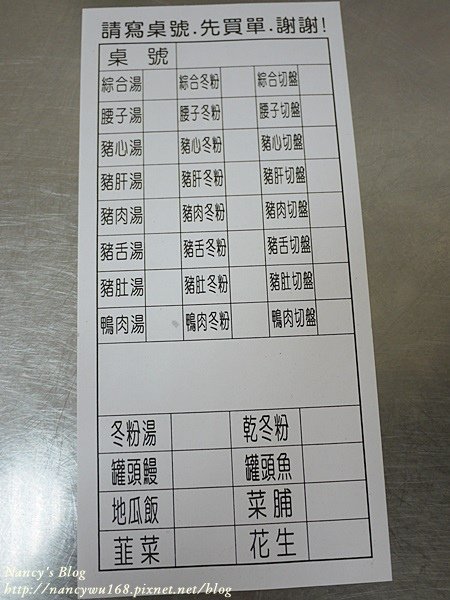 請寫桌號.先買單.謝謝!
桌號
綜合湯 綜合冬粉 綜合切盤
腰子湯 腰子冬粉 腰子切盤
豬心湯 豬心冬粉 豬心切盤
豬肝湯 豬肝冬粉 豬肝切盤
豬肉湯 豬肉冬粉 豬肉切盤
豬舌湯 豬舌冬粉 豬舌切盤
豬肚湯 豬肚冬粉 豬肚切盤
鴨肉湯 鴨肉冬粉 鴨肉切盤
冬粉湯 乾冬粉
罐頭鰻 罐頭魚
地瓜飯 菜脯
韮菜 花生
Nancy's Blog
http://nancywu168.pixnet.net/blog